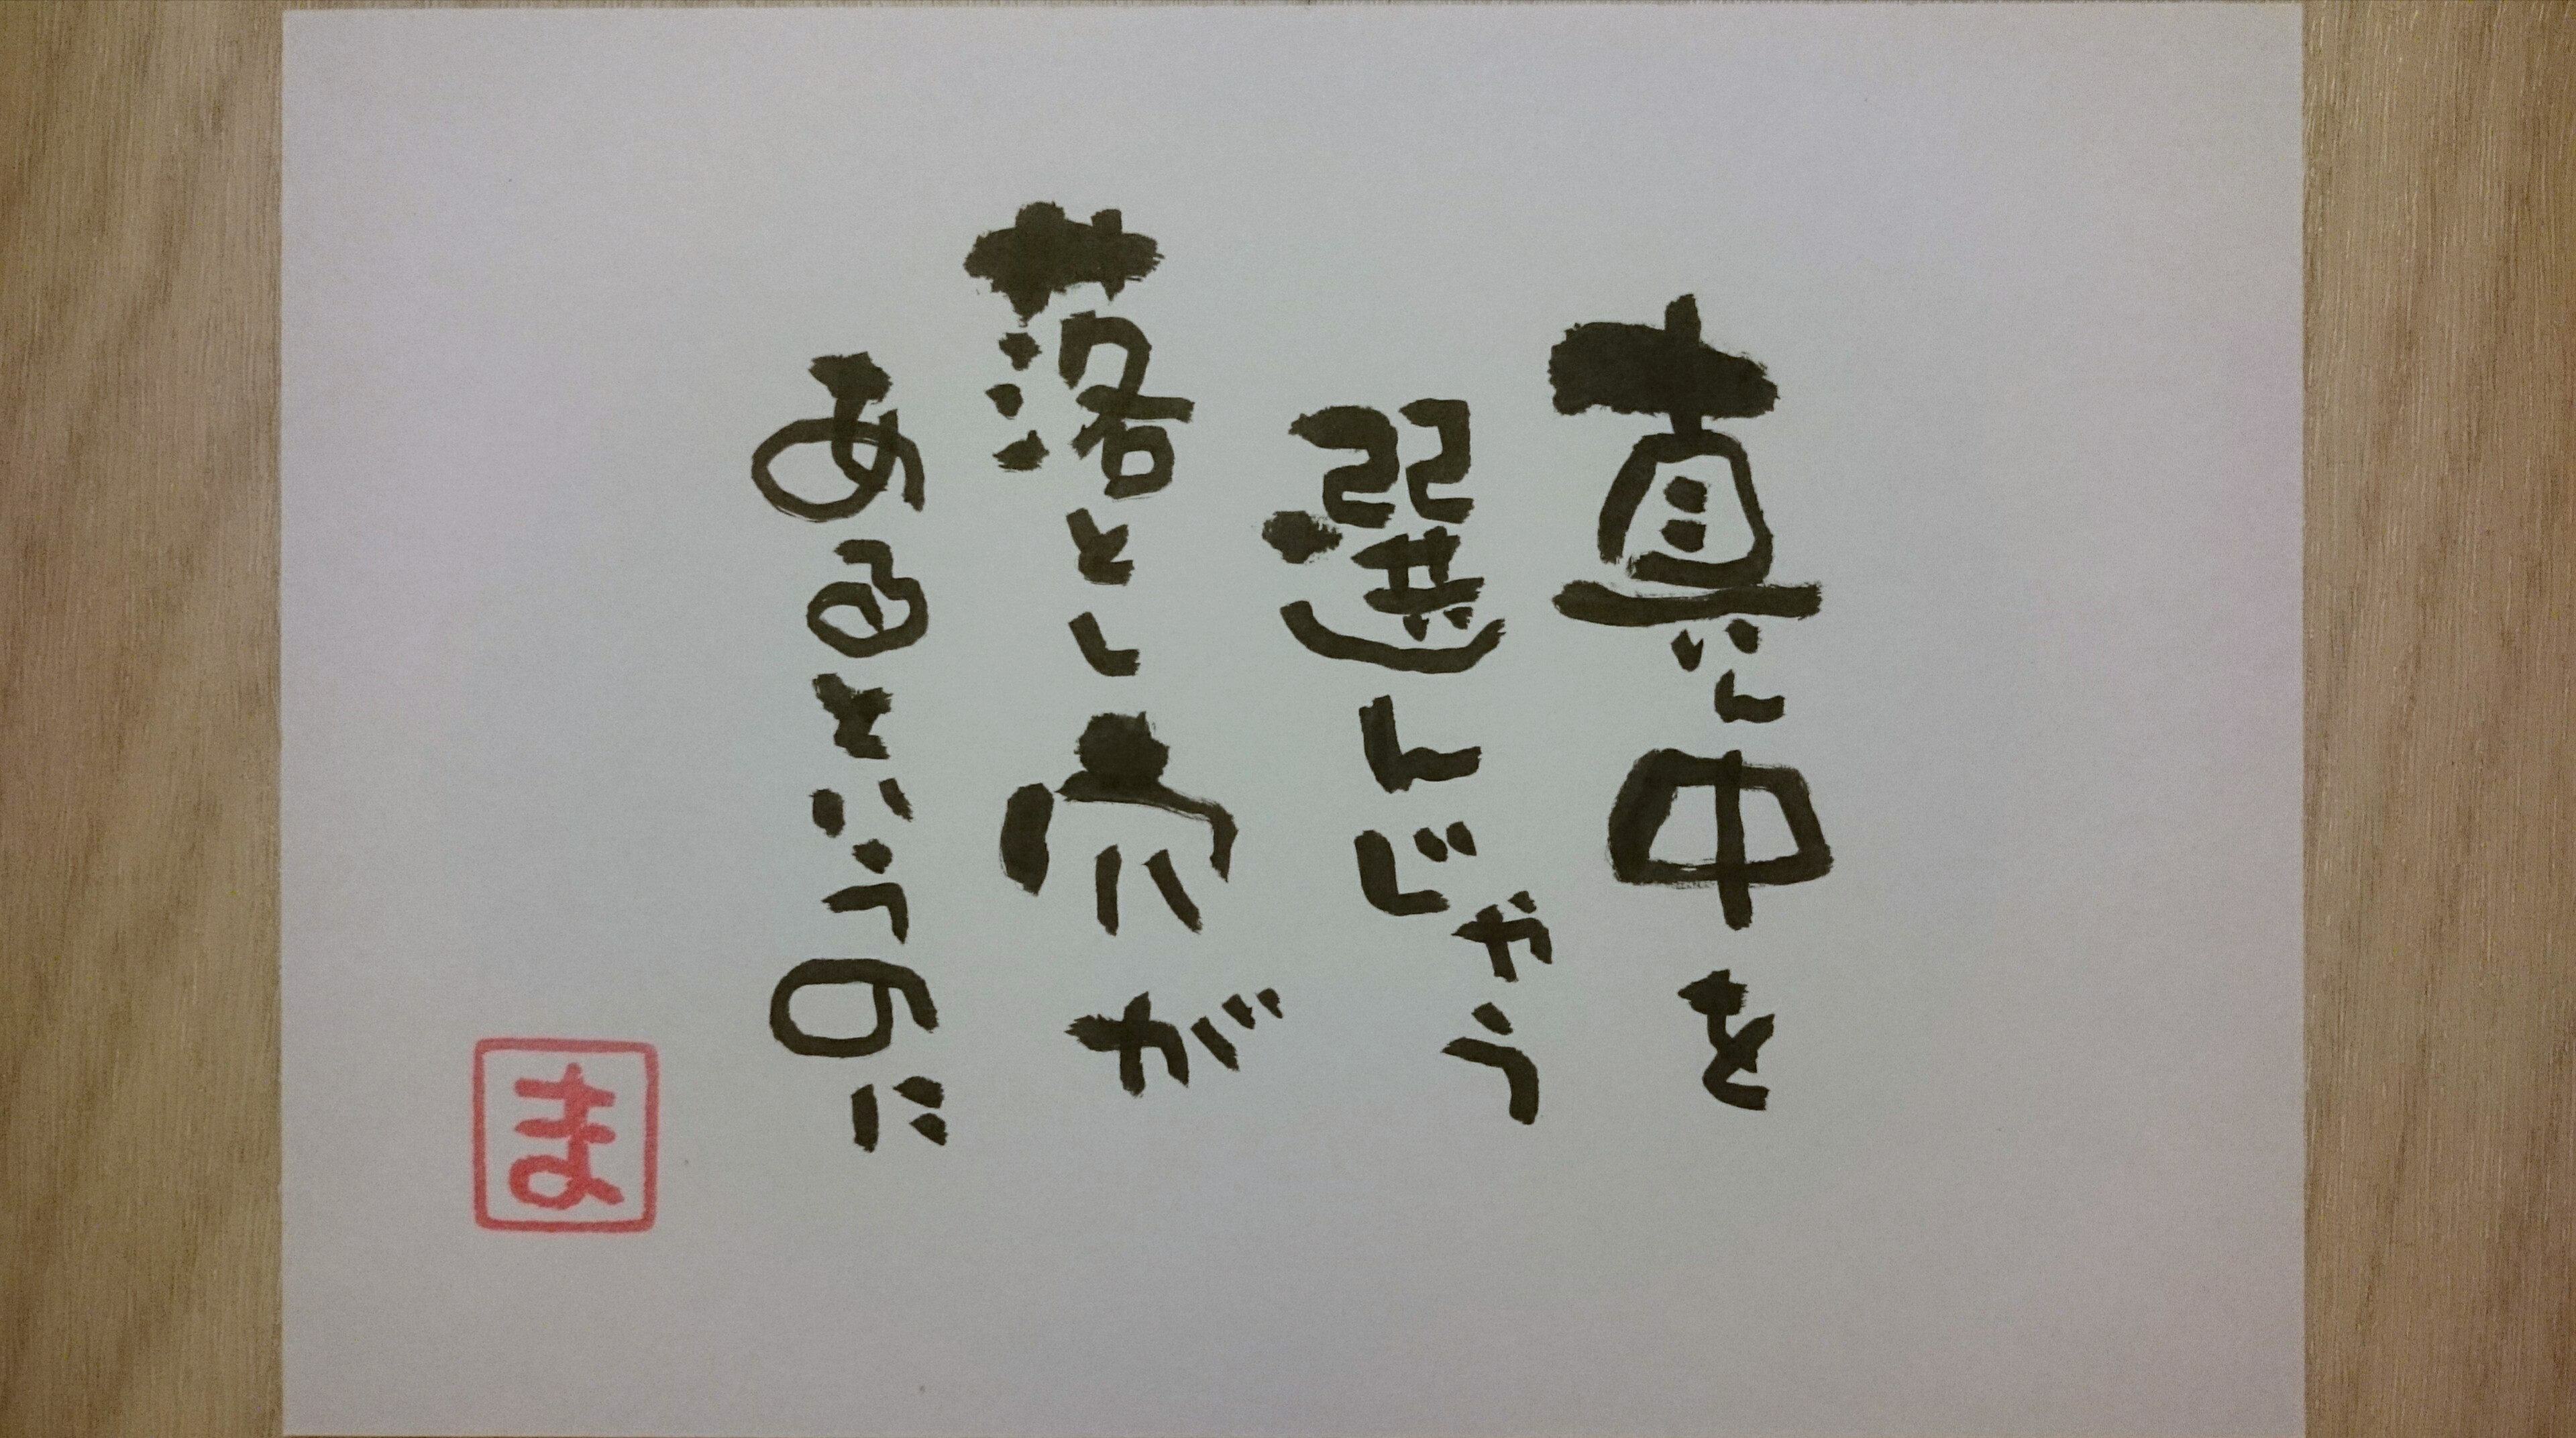 真ん中を
選んじゃう
落とし穴が
あるというのに
ま